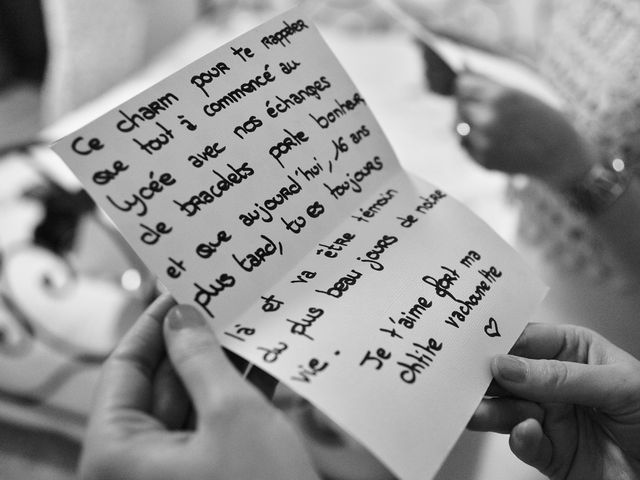 Ce charm pour te rappeler
que tout à commencé au
lycée avec nos échanges
de bracelets porte bonheur
et que aujourd'hui, 16 ans
plus tard, tu es toujours
là et va être témoin
du plus beau jours de notre
vie.
Je t'aime fort ma
chtite vachounette
♡